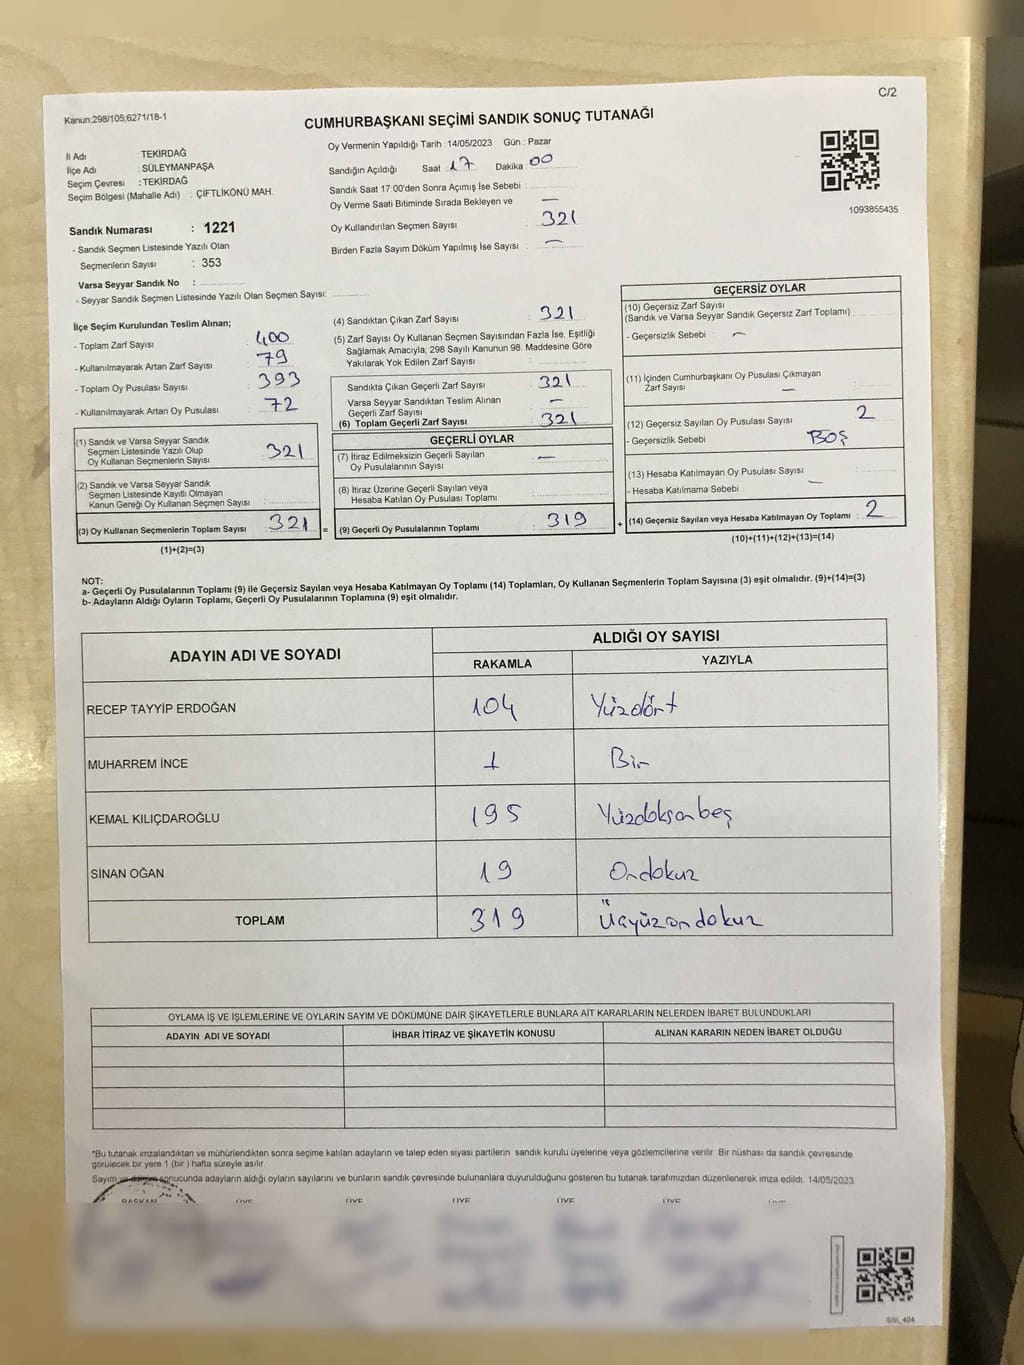 C/2
Kanun;298/105;6271/18-1
CUMHURBAŞKANI SEÇİMİ SANDIK SONUÇ TUTANAĞI
İl Adı : TEKİRDAĞ
İlçe Adı : SÜLEYMANPAŞA
Seçim Çevresi : TEKİRDAĞ
Seçim Bölgesi (Mahalle Adı) : ÇİFTLİKÖNÜ MAH.
Sandık Numarası : 1221
- Sandık Seçmen Listesinde Yazılı Olan
Seçmenlerin Sayısı : 353
Varsa Seyyar Sandık No :
- Seyyar Sandık Seçmen Listesinde Yazılı Olan Seçmen Sayısı:
Oy Vermenin Yapıldığı Tarih : 14/05/2023 Gün : Pazar
Sandığın Açıldığı Saat 17 Dakika 00
Sandık Saat 17:00'den Sonra Açımış İse Sebebi :
Oy Verme Saati Bitiminde Sırada Bekleyen ve —
Oy Kullandırılan Seçmen Sayısı : 321
Birden Fazla Sayım Döküm Yapılmış İse Sayısı : —
1093855435
İlçe Seçim Kurulundan Teslim Alınan;
- Toplam Zarf Sayısı : 400
- Kullanılmayarak Artan Zarf Sayısı : 79
- Toplam Oy Pusulası Sayısı : 393
- Kullanılmayarak Artan Oy Pusulası : 72
(1) Sandık ve Varsa Seyyar Sandık
Seçmen Listesinde Yazılı Olup
Oy Kullanan Seçmenlerin Sayısı : 321
(2) Sandık ve Varsa Seyyar Sandık
Seçmen Listesinde Kayıtlı Olmayan
Kanun Gereği Oy Kullanan Seçmen Sayısı :
(3) Oy Kullanan Seçmenlerin Toplam Sayısı : 321 =
(1)+(2)=(3)
(4) Sandıktan Çıkan Zarf Sayısı : 321
(5) Zarf Sayısı Oy Kullanan Seçmen Sayısından Fazla İse, Eşitliği
Sağlamak Amacıyla; 298 Sayılı Kanunun 98. Maddesine Göre
Yakılarak Yok Edilen Zarf Sayısı :
Sandıkta Çıkan Geçerli Zarf Sayısı : 321
Varsa Seyyar Sandıktan Teslim Alınan
Geçerli Zarf Sayısı : —
(6) Toplam Geçerli Zarf Sayısı : 321
GEÇERLİ OYLAR
(7) İtiraz Edilmeksizin Geçerli Sayılan
Oy Pusulalarının Sayısı : —
(8) İtiraz Üzerine Geçerli Sayılan veya
Hesaba Katılan Oy Pusulası Toplamı :
(9) Geçerli Oy Pusulalarının Toplamı : 319 +
GEÇERSİZ OYLAR
(10) Geçersiz Zarf Sayısı
(Sandık ve Varsa Seyyar Sandık Geçersiz Zarf Toplamı)
- Geçersizlik Sebebi : —
(11) İçinden Cumhurbaşkanı Oy Pusulası Çıkmayan
Zarf Sayısı —
(12) Geçersiz Sayılan Oy Pusulası Sayısı 2
- Geçersizlik Sebebi : BOŞ
(13) Hesaba Katılmayan Oy Pusulası Sayısı
- Hesaba Katılmama Sebebi : —
(14) Geçersiz Sayılan veya Hesaba Katılmayan Oy Toplamı : 2
(10)+(11)+(12)+(13)=(14)
NOT:
a- Geçerli Oy Pusulalarının Toplamı (9) ile Geçersiz Sayılan veya Hesaba Katılmayan Oy Toplamı (14) Toplamları, Oy Kullanan Seçmenlerin Toplam Sayısına (3) eşit olmalıdır. (9)+(14)=(3)
b- Adayların Aldığı Oyların Toplamı, Geçerli Oy Pusulalarının Toplamına (9) eşit olmalıdır.
ADAYIN ADI VE SOYADI
ALDIĞI OY SAYISI
RAKAMLA YAZIYLA
RECEP TAYYİP ERDOĞAN 104 Yüzdört
MUHARREM İNCE 1 Bir
KEMAL KILIÇDAROĞLU 195 Yüzdoksanbeş
SİNAN OĞAN 19 Ondokuz
TOPLAM 319 Üçyüzondokuz
OYLAMA İŞ VE İŞLEMLERİNE VE OYLARIN SAYIM VE DÖKÜMÜNE DAİR ŞİKAYETLERLE BUNLARA AİT KARARLARIN NELERDEN İBARET BULUNDUKLARI
ADAYIN ADI VE SOYADI İHBAR İTİRAZ VE ŞİKAYETİN KONUSU ALINAN KARARIN NEDEN İBARET OLDUĞU
*Bu tutanak imzalandıktan ve mühürlendikten sonra seçime katılan adayların ve talep eden siyasi partilerin sandık kurulu üyelerine veya gözlemcilerine verilir. Bir nüshası da sandık çevresinde
görülecek bir yere 1 (bir) hafta süreyle asılır.
Sayım ve döküm sonucunda adayların aldığı oyların sayılarını ve bunların sandık çevresinde bulunanlara duyurulduğunu gösteren bu tutanak tarafımızdan düzenlenerek imza edildi. 14/05/2023
BAŞKAN ÜYE ÜYE ÜYE ÜYE ÜYE ÜYE